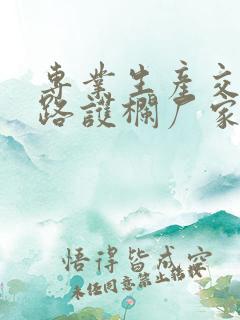 專業生產交
路護欄厂家
悟得皆成空
未经同意禁止转载